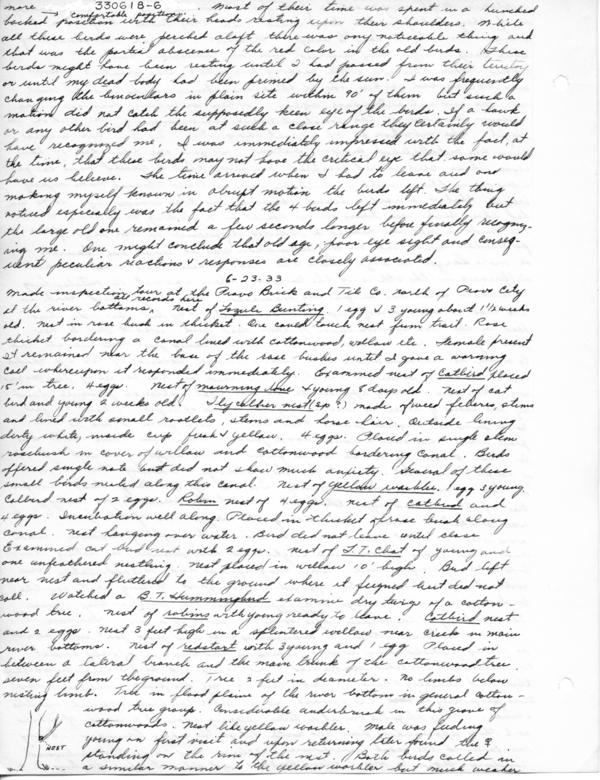 more 330618-6 . Most of their time was spent in a hunched
comfortable position
backed position with their heads resting upon their shoulders. While
all these birds were perched aloft there was any noticeable thing and
that was the partial abscense of the red color in the old birds. These
birds might have been resting until I had passed from their
or until my dead body had been primed by the sun. I was frequently
changing the binoculars in plain site within 90' of them but such a
motion did not catch the supposedly keen eye of the birds. If a hawk
or any other bird had been at such a close range they certainly would
have recognized me. I was immediately impressed with the fact, at
the time, that these birds may not have the critical eye that some would
have us believe. The time arrived when I had to leave and on
making myself known in abrupt motion the birds left. The thing
noticed especially was the fact that the 4 birds left immediately but
the large old one remained a few seconds longer before finally recogniz-
ing me. One might conclude that old age, poor eye sight and conseq-
uent peculiar reactions & responses are closely associated.
6-23-33
Made inspection tour at the Provo Brick and Tile Co. north of Provo City
all records here
at the river bottoms. Nest of Lazuli Bunting 1 egg & 3 young about 1½ weeks
old. Nest in rose bush in thicket. One could touch nest from trail. Rose
thicket bordering a canal lined with cottonwood, willow etc. Female present
It remained near the base of the rose bushes until I gave a warning
call whereupon it responded immediately. Examined nest of Catbird placed
15' in tree. 4 eggs. Nest of mourning dove & young 8 days old. Nest of cat
bird and young 2 weeks old. Flycatcher nest (sp?) made of weed fiberes, stems
and lined with small rootlets, stems and horse hair. Outside lining
dirty white, inside cup fresh & yellow. 4 eggs. Placed in single stem
rosebush in cover of willow and cottonwood bordering Canal. Birds
offered single note but did not show much anxiety. Several of these
small birds nested along this canal. Nest of yellow warbler. 1 egg 3 young.
Catbird nest of 2 eggs. Robin nest of 4 eggs. Nest of catbird and
4 eggs. Incubation well along. Placed in thicket of rose bush along
canal. Nest hanging over water. Bird did not leave until close
Examined cat bird nest with 2 eggs. Nest of L.T. Chat of young and
one unfeathered nestling. Nest placed in willow 10' high. Bird left
near nest and fluttered to the ground where it feigned but did not
call. Watched a B.T. Hummingbird examine dry twigs of a cotton-
wood tree. Nest of robins with young ready to leave. Catbird nest
and 2 eggs. Nest 3 feet high in a splintered willow near creek in main
river bottoms. Nest of redstart with 3 young and 1 egg Placed in
between a lateral branch and the main trunk of the cottonwood tree.
seven feet from the ground. Tree 2 feet in diameter. No limbs below
nesting limb. Tree in flood plaine of the river bottom in general cotton-
wood tree group. Considerable underbrush in this grove of
cottonwoods. Nest like yellow warbler. Male was feeding
NEST
young on first visit and upon returning later found the ♀
standing on the rim of the nest. Both birds called in
a similar manner to the yellow warbler but much weaker